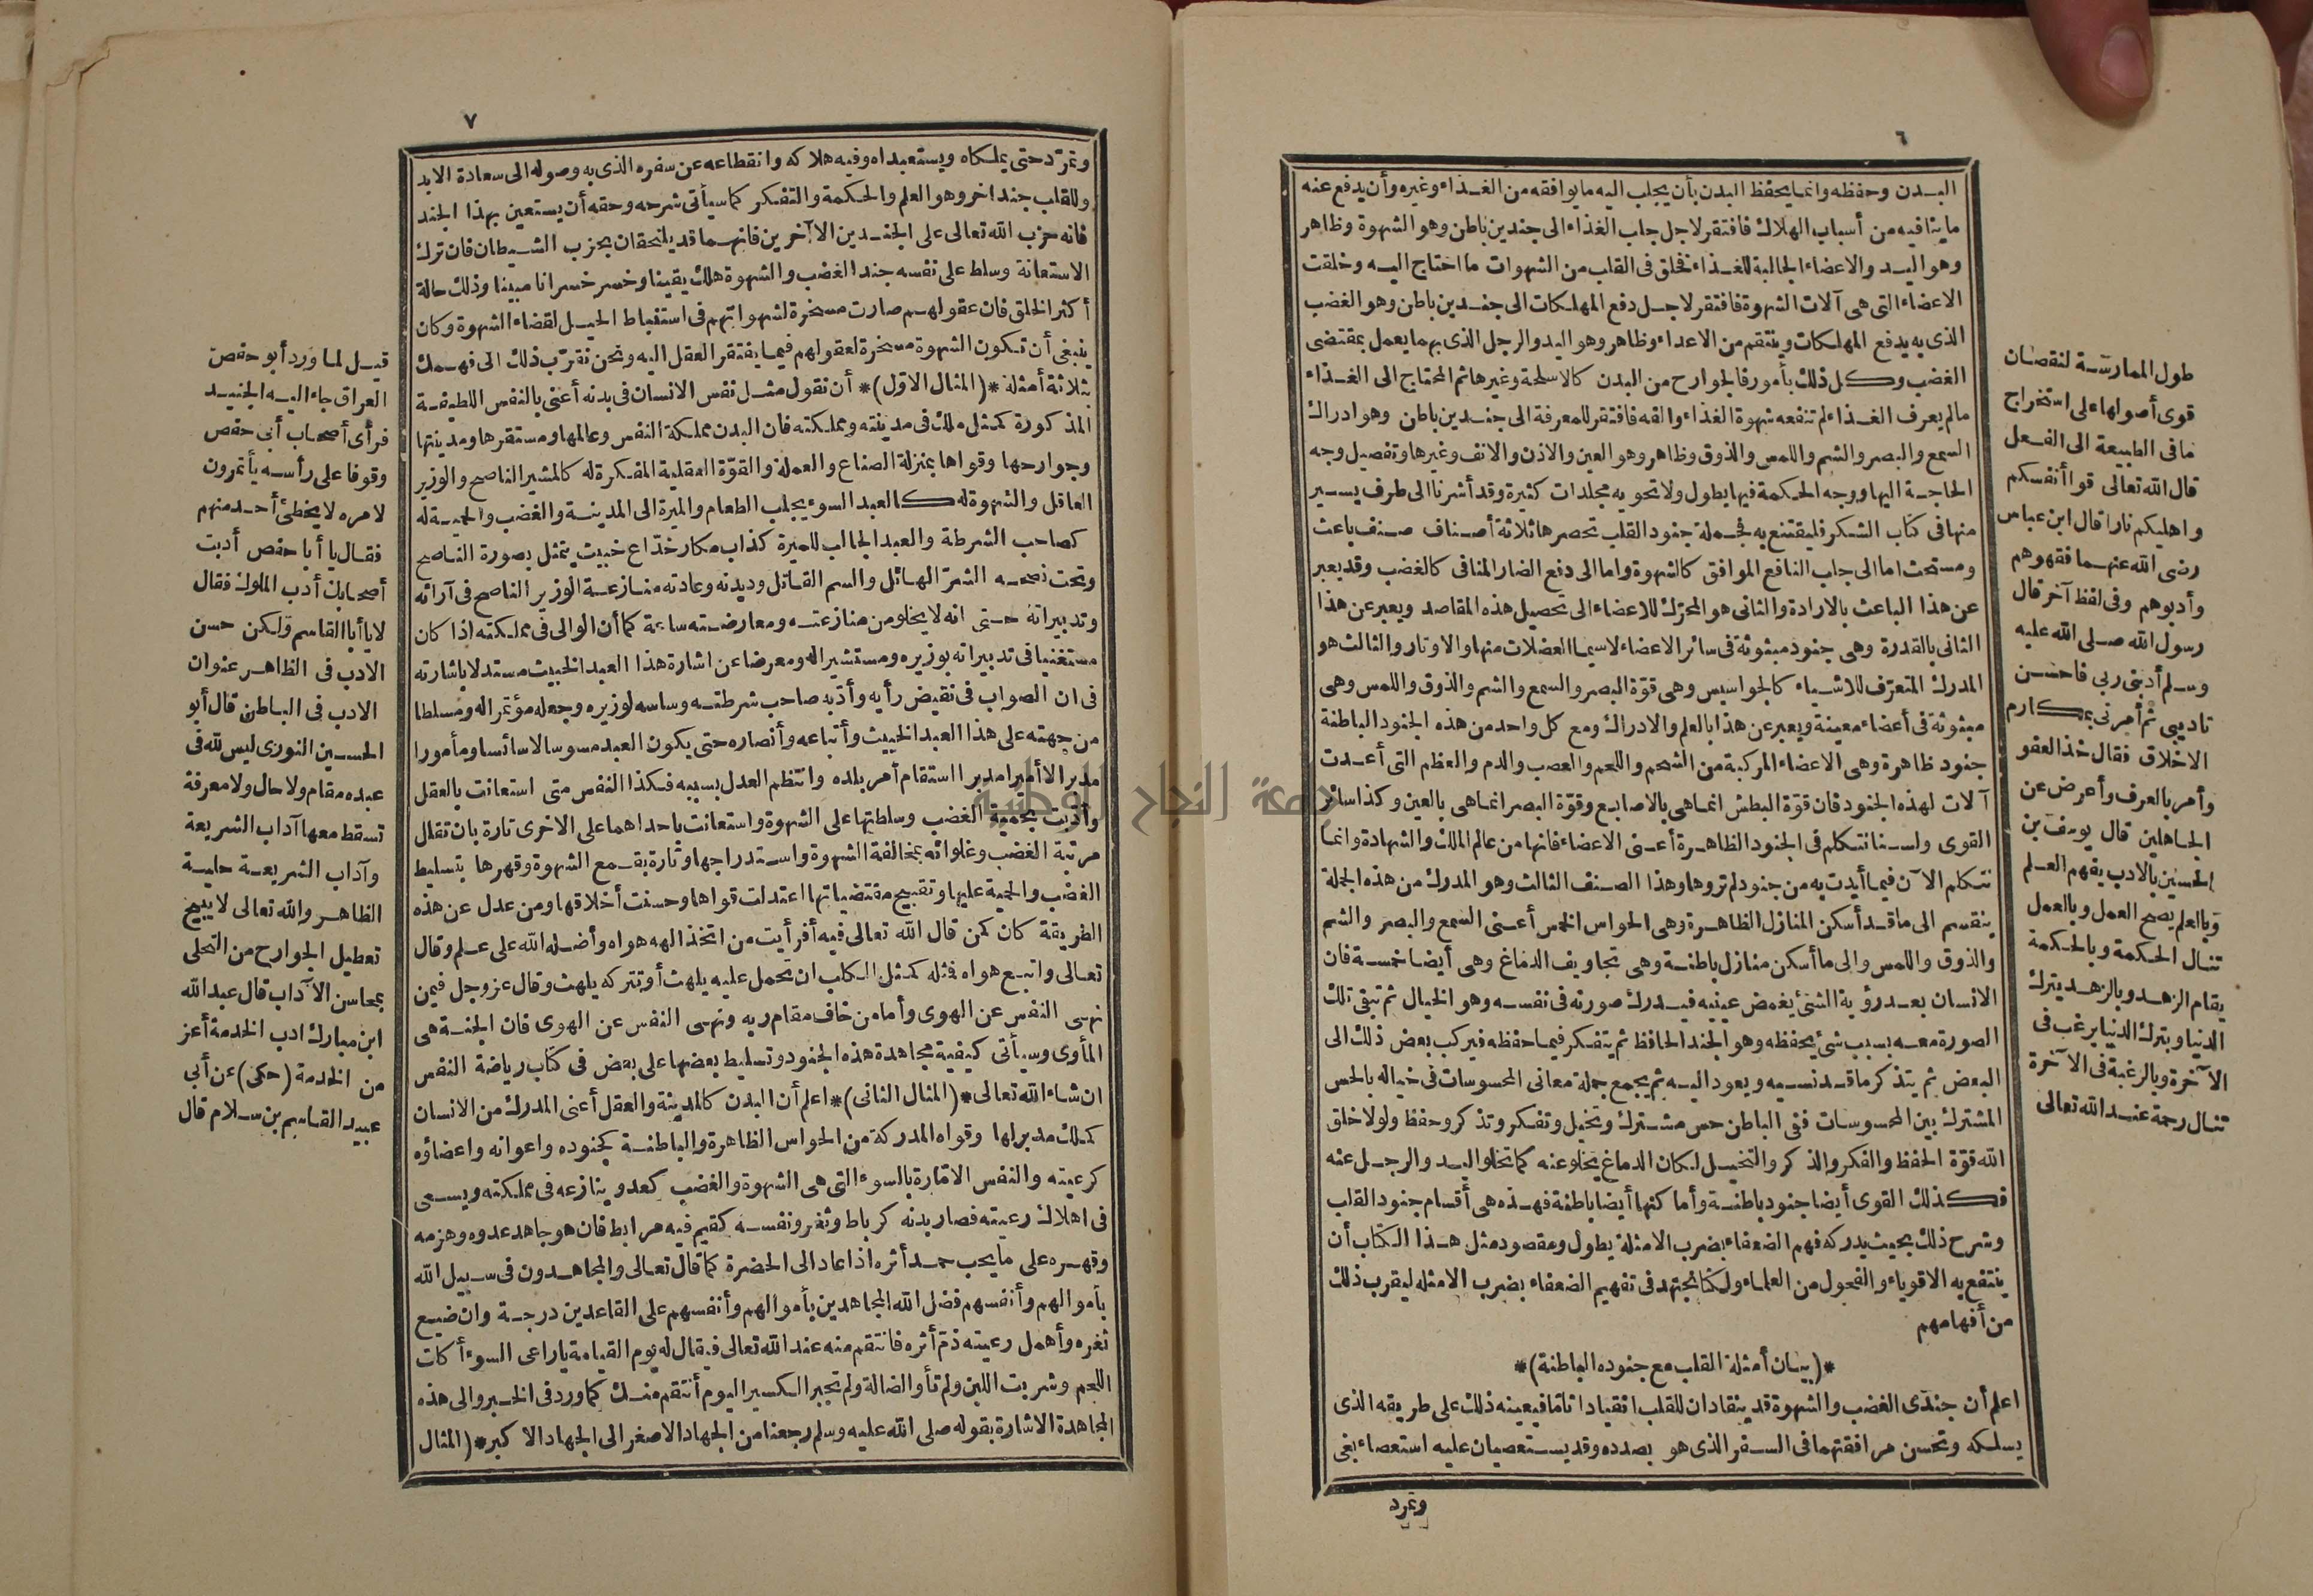 ٦
البدن وحفظه وانما يحفظ البدن بأن يجلب اليه ما يوافقه من الغذاء وغيره وأن يدفع عنه
ما ينافيه من أسباب الهلاك فافتقر لاجل جلب الغذاء الى جندين باطن وهو الشهوة وظاهر
وهو اليد والاعضاء الجالبة للغذاء فخلق فى القلب من الشهوات ما احتاج اليه وخلقت
الاعضاء التى هى آلات الشهوة فافتقر لاجل دفع المهلكات الى جندين باطن وهو الغضب
الذى به يدفع المهلكات وينتقم من الاعداء وظاهر وهو اليد والرجل الذى بهما يعمل بمقتضى
الغضب وكل ذلك بأمور فالجوارح من البدن كالاسلحة وغيرها ثم المحتاج الى الغذاء
مالم يعرف الغذاء لم تنفعه شهوة الغذاء والفه فافتقر للمعرفة الى جندين باطن وهو ادراك
السمع والبصر والشم واللمس والذوق وظاهر وهو العين والاذن والانف وغيرها وتفصيل وجه
الحاجة اليها ووجه الحكمة فيها يطول ولا تحويه مجلدات كثيرة وقد أشرنا الى طرف يسير
منها فى كتاب الشكر فليقتنع به فجملة جنود القلب تحصرها ثلاثة أصناف صنف باعث
ومستحث اما الى جلب النافع الموافق كالشهوة واما الى دفع الضار المنافى كالغضب وقد يعبر
عن هذا الباعث بالارادة والثانى هو المحرك للاعضاء الى تحصيل هذه المقاصد ويعبر عن هذا
الثانى بالقدرة وهى جنود مبثوثة فى سائر الاعضاء لاسيما العضلات منها والاوتار والثالث هو
المدرك المتعرّف للاشياء كالجواسيس وهى قوّة البصر والسمع والشم والذوق واللمس وهى
مبثوثة فى أعضاء معينة ويعبر عن هذا بالعلم والادراك ومع كل واحد من هذه الجنود الباطنة
جنود ظاهرة وهى الاعضاء المركبة من الشحم واللحم والعصب والدم والعظم التى أعدت
آلات لهذه الجنود فان قوّة البطش انما هى بالاصابع وقوّة البصر انما هى بالعين وكذا سائر
القوى ولسنا نتكلم فى الجنود الظاهرة أعنى الاعضاء فانها من عالم الملك والشهادة وانما
نتكلم الآن فيما أيدت به من جنود لم تروها وهذا الصنف الثالث وهو المدرك من هذه الجملة
ينقسم الى ما قد أسكن المنازل الظاهرة وهى الحواس الخمس أعنى السمع والبصر والشم
والذوق واللمس والى ما أسكن منازل باطنة وهى تجاويف الدماغ وهى أيضا خمسة فان
الانسان بعد رؤية الشئ يغمض عينيه فيدرك صورته فى نفسه وهو الخيال ثم تبقى تلك
الصورة معه بسبب شئ يحفظه وهو الجند الحافظ ثم يتفكر فيما حفظه فيركب بعض ذلك الى
البعض ثم يتذكر ما قد نسيه ويعود اليه ثم يجمع جملة معانى المحسوسات فى خياله بالحس
المشترك بين المحسوسات ففى الباطن حس مشترك وتخيل وتفكر وتذكر وحفظ ولولا خلق
الله قوّة الحفظ والفكر والذكر والتخيل لكان الدماغ يخلو عنه كما تخلو اليد والرجل عنه
فكذلك القوى أيضا جنود باطنة وأماكنها أيضا باطنة فهذه هى أقسام جنود القلب
وشرح ذلك بحيث يدركه فهم الضعفاء بضرب الامثلة يطول ومقصود مثل هذا الكتاب أن
ينتفع به الاقوياء والفحول من العلماء ولكنا نجتهد فى تفهيم الضعفاء بضرب الامثله ليقرب ذلك
من أفهامهم
*(بيان أمثلة القلب مع جنوده الباطنة)*
اعلم أن جندى الغضب والشهوة قد ينقادان للقلب انقيادا تاما فيعينه ذلك على طريقه الذى
يسلكه وتحسن مرافقتهما فى السفر الذى هو بصدده وقد يستعصيان عليه استعصاء بغى
وتمرد
طول الممارسة لنقصان
قوى أصولها على استخراج
ما فى الطبيعة الى الفعل
قال الله تعالى قوا أنفسكم
واهليكم نارا قال ابن عباس
رضى الله عنهما فقهوهم
وأدبوهم وفى لفظ آخر قال
رسول الله صلى الله عليه
وسلم أدبنى ربى فاحسن
تاديبى ثم أمرنى بمكارم
الاخلاق فقال خذ العفو
وأمر بالعرف وأعرض عن
الجاهلين قال يوسف بن
الحسين بالادب يفهم العلم
وبالعلم يصح العمل وبالعمل
تنال الحكمة وبالحكمة
يقام الزهد وبالزهد يترك
الدنيا وبترك الدنيا يرغب فى
الآخرة وبالرغبة فى الآخرة
تنال رحمة عند الله تعالى
٧
وتمرّد حتى يملكاه ويستعبداه وفيه هلاكه وانقطاعه عن سفره الذى به وصوله الى سعادة الابد
وللقلب جند اخر وهو العلم والحكمة والتفكر كما سيأتى شرحه وحقه أن يستعين بهذا الجند
فانه حزب الله تعالى على الجندين الآخرين فانهما قد يلتحقان بحزب الشيطان فان ترك
الاستعانة وسلط على نفسه جند الغضب والشهوة هلك يقينا وخسر خسرانا مبينا وذلك حالة
أكثر الخلق فان عقولهم صارت مسخرة لشهواتهم فى استنباط الحيل لقضاء الشهوة وكان
ينبغى أن تكون الشهوة مسخرة لعقولهم فيما يفتقر العقل اليه ونحن نقرّب ذلك الى فهمك
بثلاثة أمثلة *(المثال الاوّل)* أن نقول مثل نفس الانسان فى بدنه أعنى بالنفس اللطيفة
المذكورة كمثل ملك فى مدينته ومملكته فان البدن مملكة النفس وعالمها ومستقرها ومدينتها
وجوارحها وقواها بمنزلة الصناع والعملة والقوّة العقلية المفكرة له كالمشير الناصح والوزير
العاقل والشهوة له كالعبد السوء يجلب الطعام والميرة الى المدينة والغضب والحمية له
كصاحب الشرطة والعبد الجالب للميرة كذاب مكار خدّاع خبيث يتمثل بصورة الناصح
وتحت نصحه الشرّ الهائل والسم القاتل وديدنه وعادته منازعة الوزير الناصح فى آرائه
وتدبيراته حتى انه لا يخلو من منازعته ومعارضته ساعة كما أن الوالى فى مملكته اذا كان
مستغنيا فى تدبيراته بوزيره ومستشيرا له ومعرضا عن اشارة هذا العبد الخبيث مستدلا باشارته
فى ان الصواب فى نقيض رأيه وأدّبه صاحب شرطته وساسه لوزيره وجعله مؤتمرا له ومسلطا
من جهته على هذا العبد الخبيث وأتباعه وأنصاره حتى يكون العبد مسوسا لا سائسا ومأمورا
مدبرا لا أميرا مدبرا استقام أمر بلده وانتظم العدل بسببه فكذا النفس متى استعانت بالعقل
وأدّبت بحمية الغضب وسلطتها على الشهوة واستعانت باحداهما على الاخرى تارة بان تقلل
مرتبة الغضب وغلوائه بمخالفة الشهوة واستدراجها وتارة بقمع الشهوة وقهرها بتسليط
الغضب والحمية عليها وتقبيح مقتضياتها اعتدلت قواها وحسنت أخلاقها ومن عدل عن هذه
الطريقة كان كمن قال الله تعالى فيه أفرأيت من اتخذ الهه هواه وأضله الله على علم وقال
تعالى واتبع هواه فمثله كمثل الكلب ان تحمل عليه يلهث أو تتركه يلهث وقال عز وجل فيمن
نهى النفس عن الهوى وأما من خاف مقام ربه ونهى النفس عن الهوى فان الجنة هى
المأوى وسيأتى كيفية مجاهدة هذه الجنود وتسليط بعضها على بعض فى كتاب رياضة النفس
ان شاء الله تعالى *(المثال الثانى)* اعلم أن البدن كالمدينة والعقل أعنى المدرك من الانسان
كملك مدبر لها وقواه المدركة من الحواس الظاهرة والباطنة كجنوده واعوانه واعضاؤه
كرعيته والنفس الامّارة بالسوء التى هى الشهوة والغضب كعدو ينازعه فى مملكته ويسعى
فى اهلاك رعيته فصار بدنه كرباط وثغر ونفسه كقيم فيه مرابط فان هو جاهد عدوه وهزمه
وقهره على ما يحب حمد أثره اذا عاد الى الحضرة كما قال تعالى والمجاهدون فى سبيل الله
بأموالهم وأنفسهم فضل الله المجاهدين بأموالهم وأنفسهم على القاعدين درجة وان ضيع
ثغره وأهمل رعيته ذمّ أثره فانتقم منه عند الله تعالى فيقال له يوم القيامة يا راعى السوء أكلت
اللحم وشربت اللبن ولم تأو الضالة ولم تجبر الكسير اليوم أنتقم منك كما ورد فى الخبر والى هذه
المجاهدة الاشارة بقوله صلى الله عليه وسلم رجعنا من الجهاد الاصغر الى الجهاد الاكبر *(المثال
قيل لما ورد أبو حفص
العراق جاء اليه الجنيد
فرأى أصحاب أبى حفص
وقوفا على رأسه يأتمرون
لامره لا يخطئ أحد منهم
فقال يا أبا حفص أدبت
أصحابك أدب الملوك فقال
لا يا أبا القاسم ولكن حسن
الادب فى الظاهر عنوان
الادب فى الباطن قال أبو
الحسين النورى ليس لله فى
عبده مقام ولا حال ولا معرفة
تسقط معها آداب الشريعة
وآداب الشريعة حلية
الظاهر والله تعالى لا يبيح
تعطيل الجوارح من التحلى
بمحاسن الآداب قال عبد الله
ابن مبارك ادب الخدمة أعز
من الخدمة (حكى) عن أبى
عبيد القاسم بن سلام قال
جامعة النجاح الوطنية